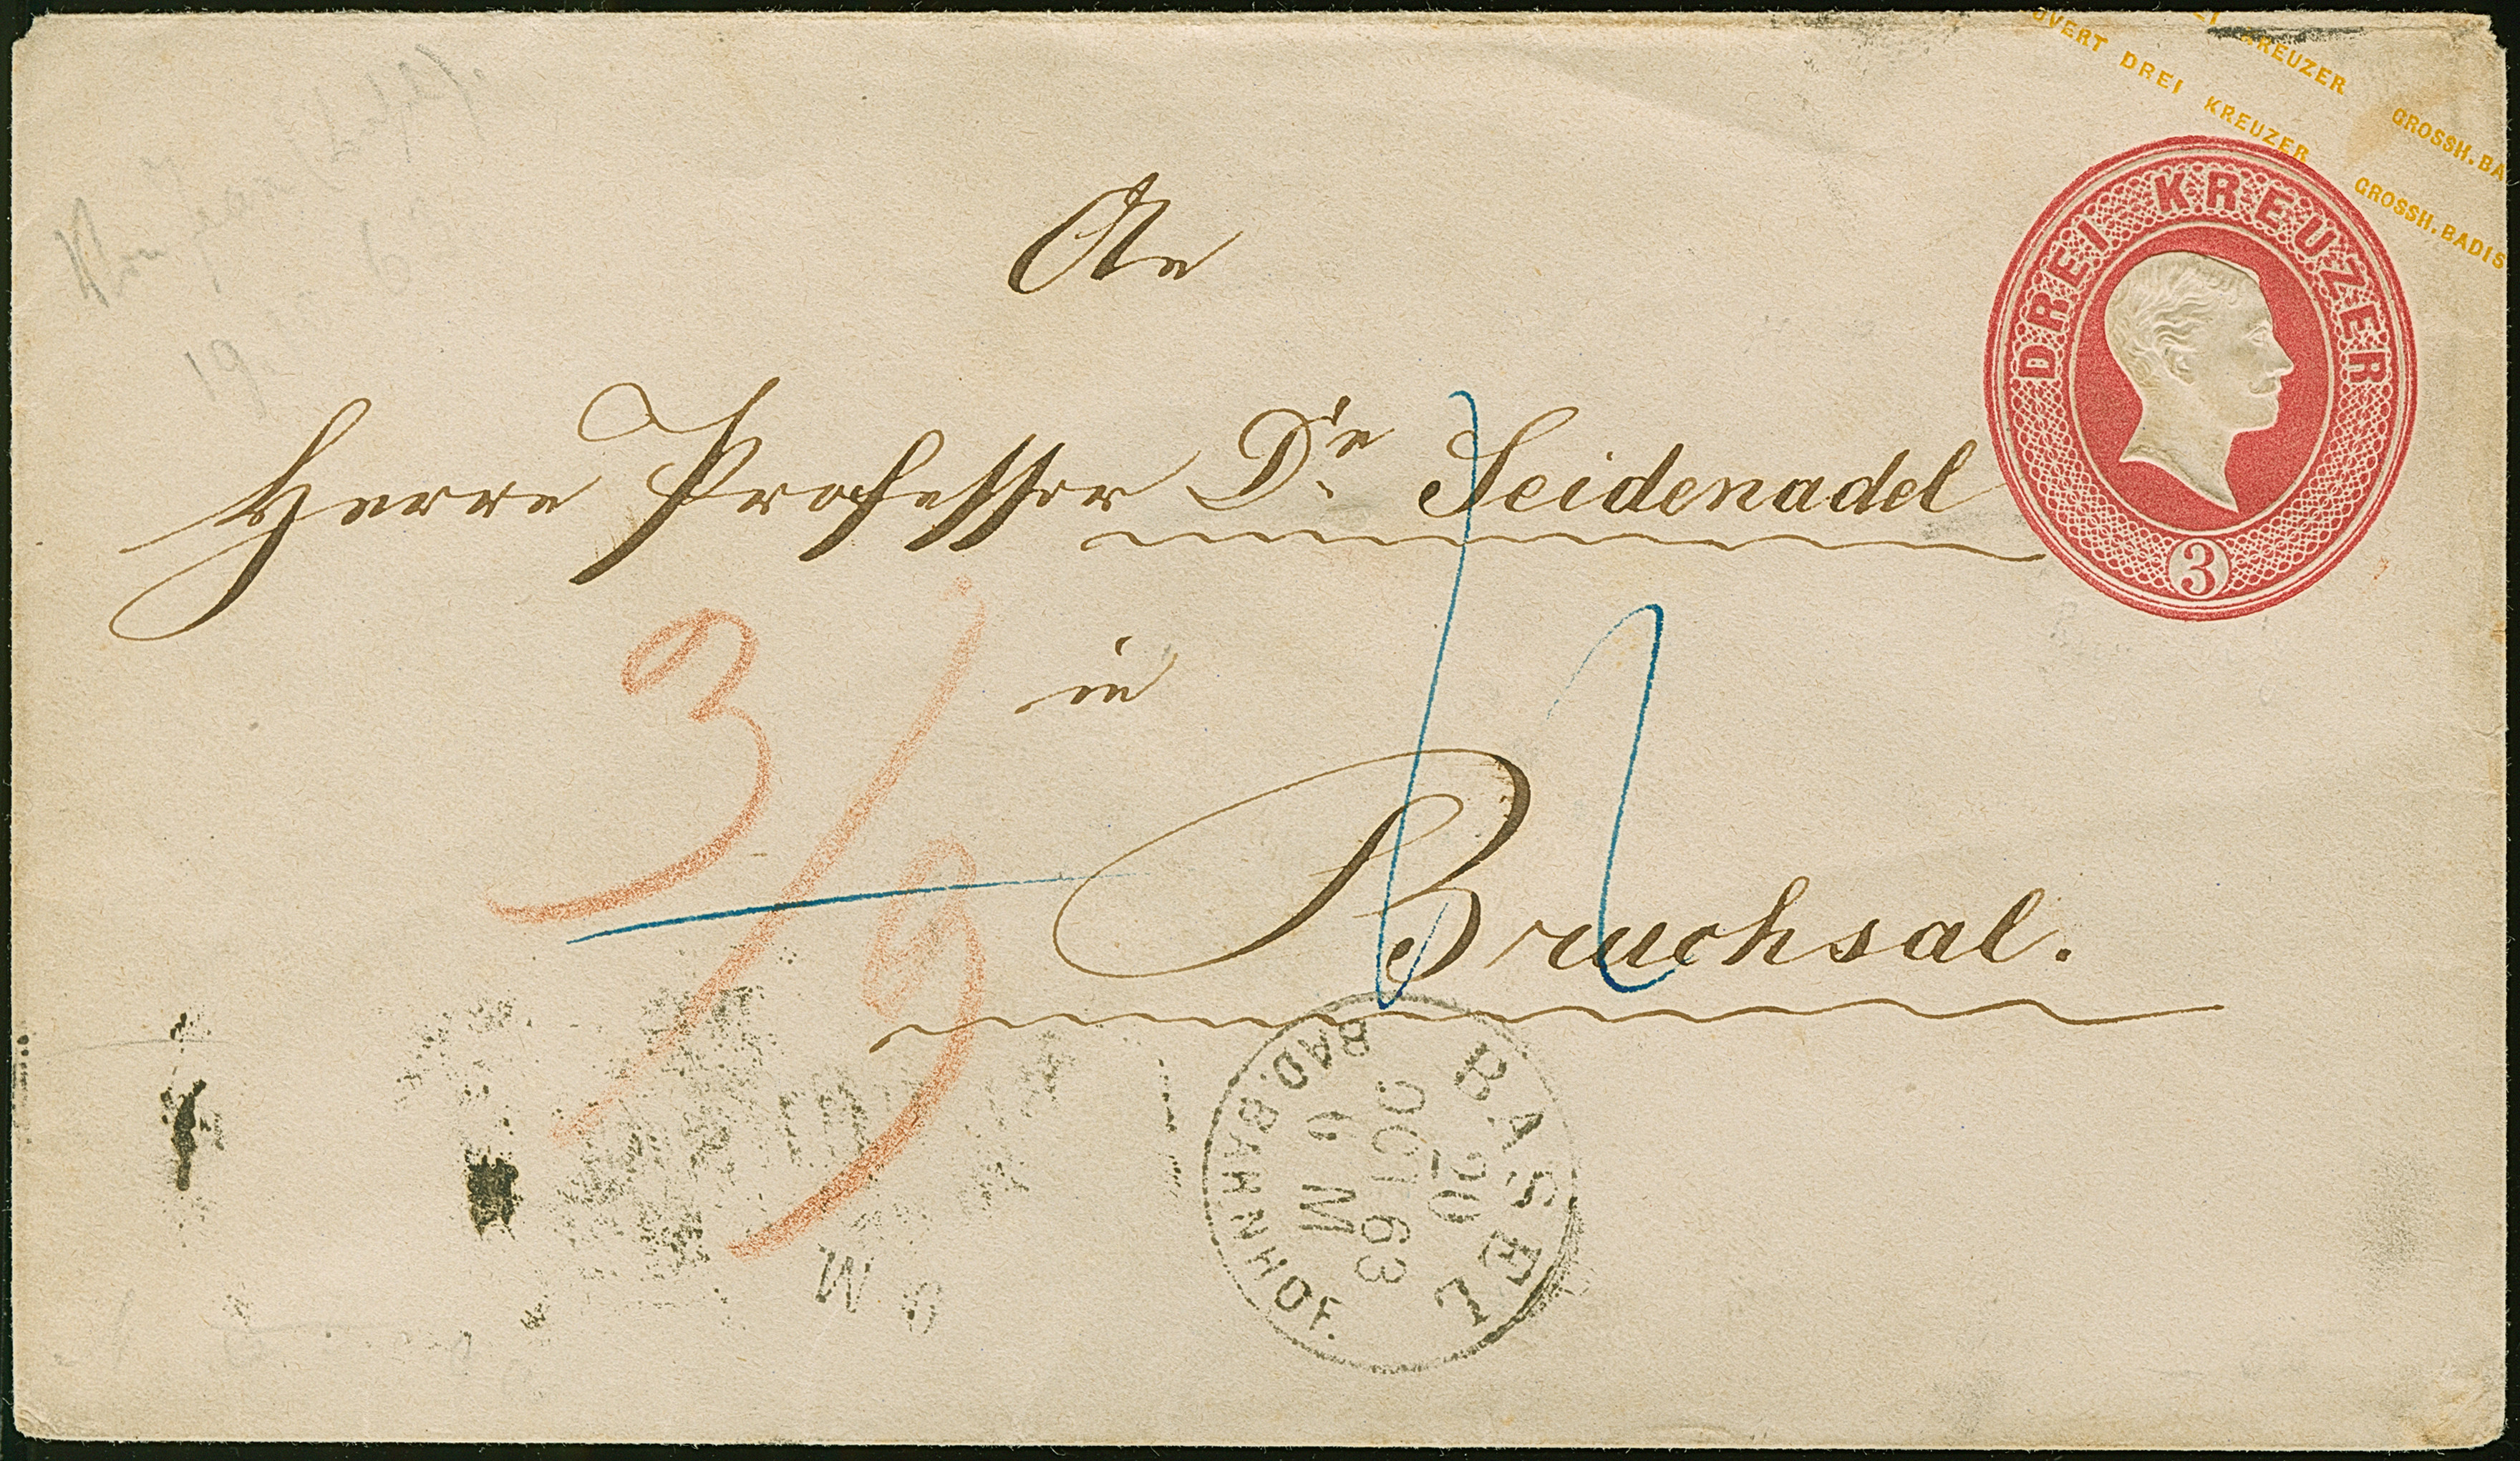 OUVERT DREI KREUZER GROSSH.BADIS
KREUZER GROSSH.BA
DREI KREUZER
3
An
Herrn Professor Dr. Seidenadel
in
Bruchsal.
3/9
BASEL
20
OCT 63
6 M
BAD. BAHNHOF.
6 M